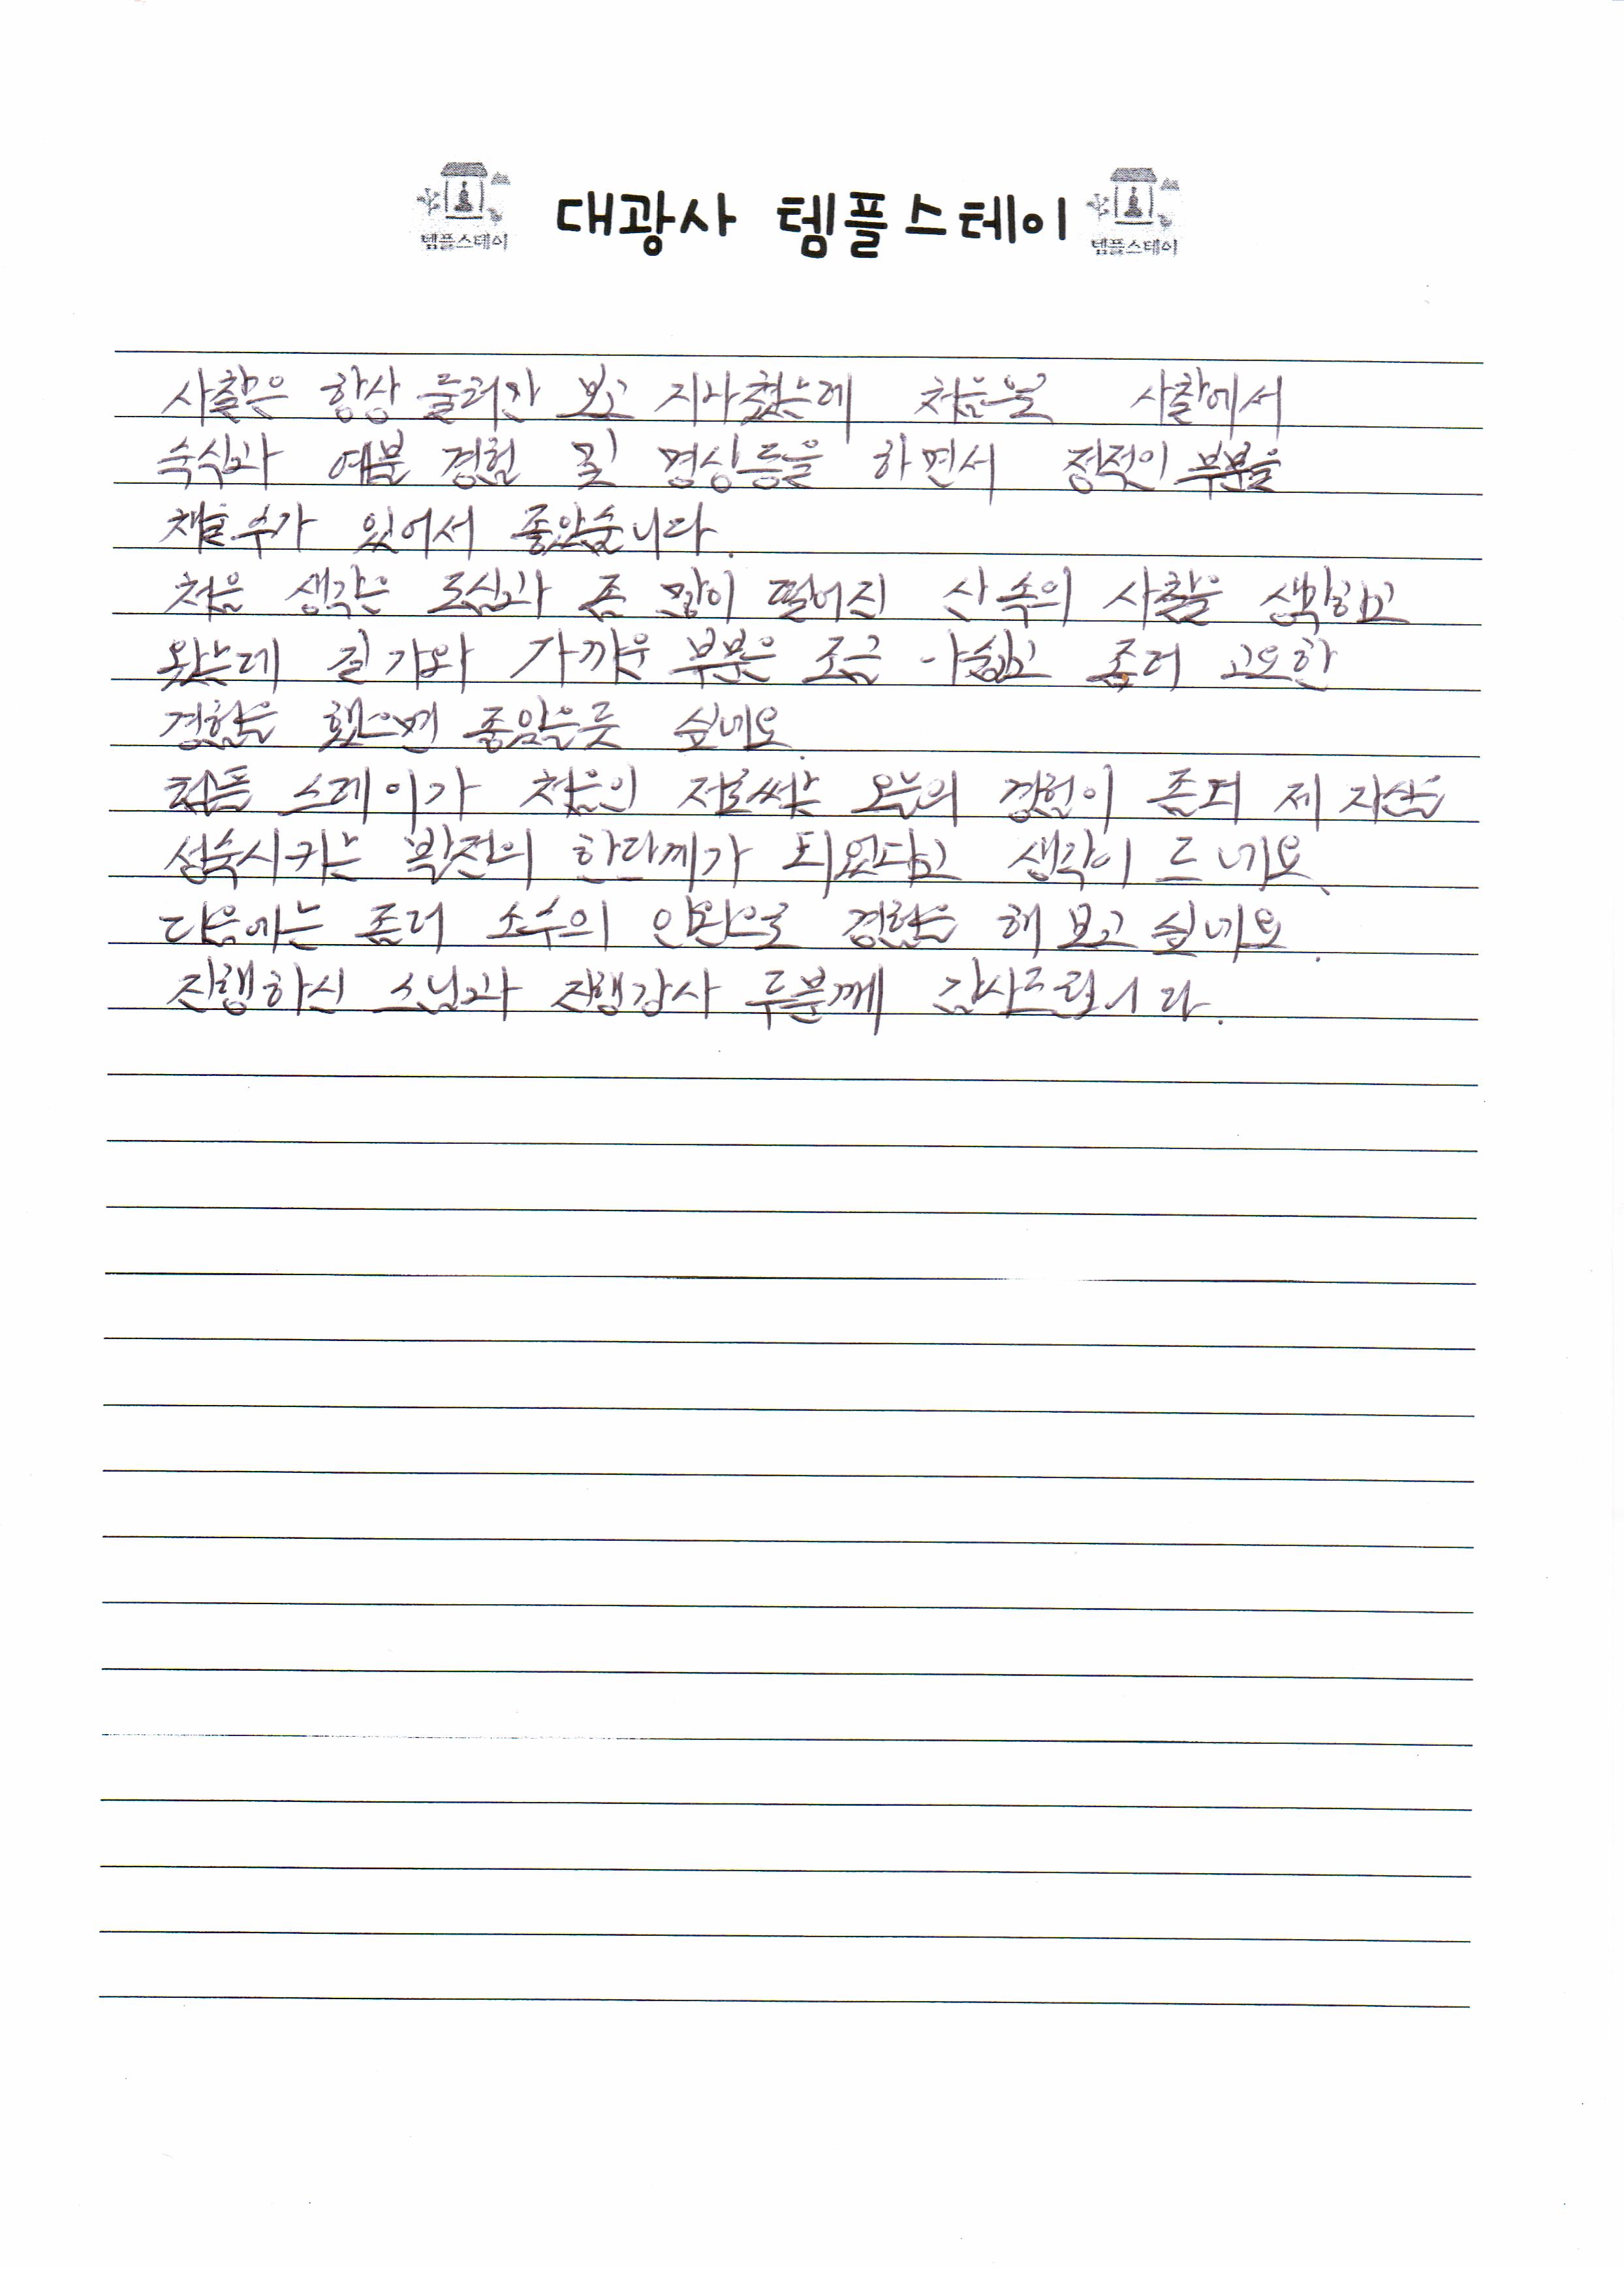 템플스테이 대광사 템플스테이 템플스테이
사찰은 항상 둘러만 보고 지나쳤는데 처음으로 사찰에서
숙식과 예불 경험 및 명상등을 하면서 정적인 부분을
채울수가 있어서 좋았습니다.
처음 생각은 도심과 좀 많이 떨어진 산속의 사찰을 생각하고
왔는데 길가와 가까운 부분은 조금 아쉽고 좀더 고요한
경험을 했으면 좋았을듯 싶네요.
템플 스테이가 처음인 저로써는 오늘의 경험이 좀더 제 자신을
성숙시키는 발전의 한단계가 되었다고 생각이 드네요.
다음에는 좀더 소수의 인원으로 경험을 해 보고 싶네요.
진행하신 스님과 진행강사 두분께 감사드립니다.